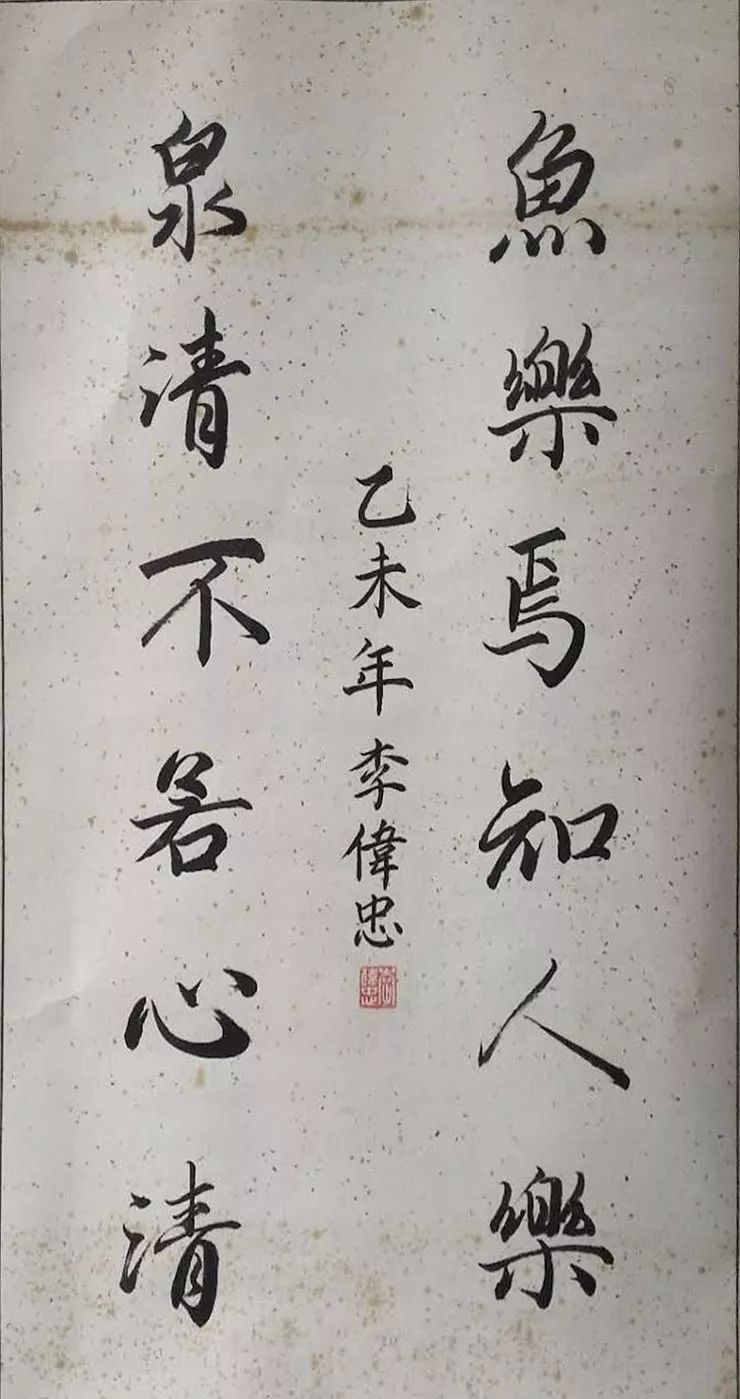 魚樂焉知人樂
泉清不若心清
乙未年李偉忠